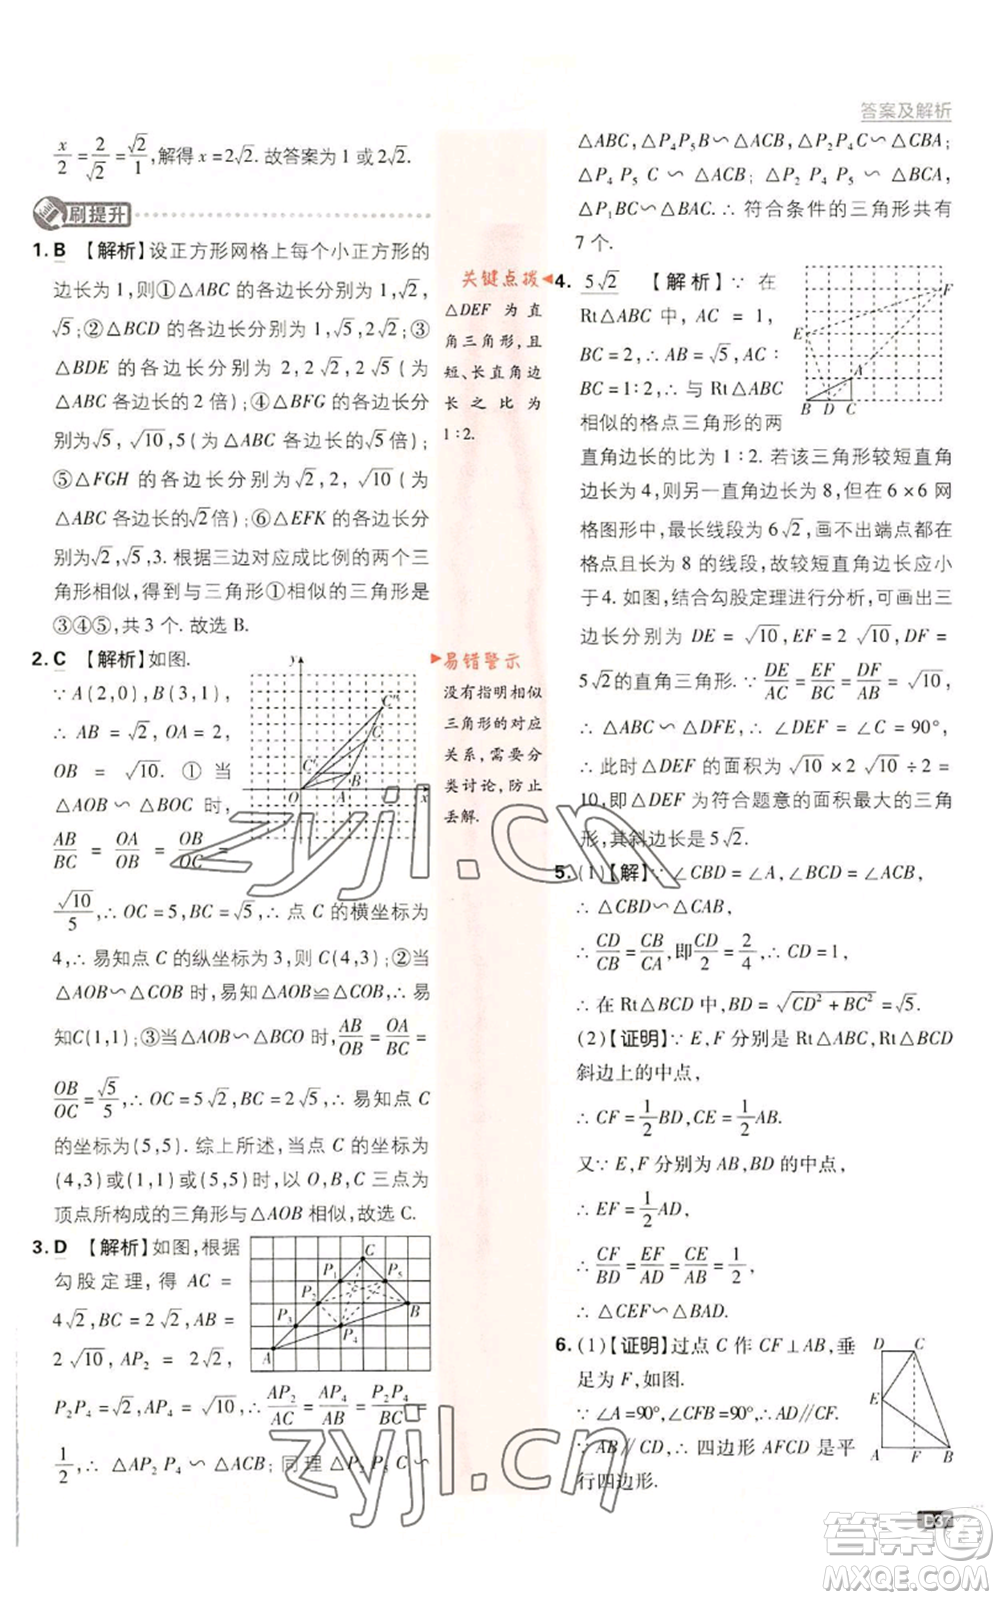 答案及解析
x/2=2/√2=√2/1,解得 x=2√2. 故答案为 1 或2√2.
刷提升
1. B 【解析】设正方形网格上每个小正方形的
边长为 1,则①△ABC 的各边长分别为 1,√2,
√5;②△BCD 的各边长分别为 1,√5,2√2;③
△BDE 的各边长分别为 2,2√2,2√5(为
△ABC 各边长的 2 倍);④△BFG 的各边长分
别为√5,√10,5(为△ABC 各边长的√5倍);
⑤△FGH 的各边长分别为 2,√2,√10(为
△ABC 各边长的√2倍);⑥△EFK 的各边长分
别为√2,√5,3. 根据三边对应成比例的两个三
角形相似,得到与三角形①相似的三角形是
③④⑤,共 3 个. 故选 B.
2. C 【解析】如图.
∵ A(2,0),B(3,1),
∴ AB=√2,OA=2,
OB=√10. ① 当
△AOB∽△BOC 时,
AB/BC=OA/OB=OB/OC=
√10/5,∴ OC=5,BC=√5,∴ 点 C 的横坐标为
4,∴ 易知点 C 的纵坐标为 3,∴ C(4,3);②当
△AOB∽△AOC 时,易知△AOB≌△AOC,∴ 易
知C(1,1);③当△AOB∽△BCO 时,AB/OB=OA/BC=
OB/OC=√5/5,∴ OC=5√2,BC=2√5,∴ 易知点 C
的坐标为(5,5). 综上所述,当点 C 的坐标为
(4,3)或(1,1)或(5,5)时,以 O,B,C 三点为
顶点所构成的三角形与△AOB 相似,故选 C.
y
C'''
C
C'
B
O
A
x
3. D 【解析】如图,根据
勾股定理,得 AC=
4√2,BC=2√2,AB=
2√10,AP₂=2√2,
P₂P₄=√2,AP₄=√10,∴ AP₂/AC=AP₄/AB=P₂P₄/BC=
1/2,∴ △AP₂P₄∽△ACB; 同理 △P₂P₅C∽
C
P₁
P₅
P₂
B
P₃
P₄
A
关键点拨
△DEF 为直
角三角形,且
短、长直角边
长之比为
1∶2.
易错警示
没有指明相似
三角形的对应
关系,需要分
类讨论,防止
丢解.
△ABC, △P₄P₅B∽△ACB, △P₅P₄P₂∽△CBA,
△P₅P₄C∽△CAB,△P₄P₂C∽△CAB,
△P₁BC∽△BAC. ∴ 符合条件的三角形共有
7 个.
4. 5√2 【解析】∵ 在
Rt△ABC 中, AC=1,
BC=2,∴ AB=√5,AC∶
BC=1∶2,∴ 与 Rt△ABC
相似的格点三角形的两
直角边长的比为 1∶2. 若该三角形较短直角
边长为 4,则另一直角边长为 8,但在 6×6 网
格图形中,最长线段为 6√2,画不出端点都在
格点且长为 8 的线段,故较短直角边长应小
于4. 如图,结合勾股定理进行分析,可画出三
边长分别为 DE=√10,EF=2√10,DF=
5√2的直角三角形.∵ DE/AC=EF/BC=DF/AB=√10,
∴ △ABC∽△DFE, ∴ ∠DEF=∠C=90°,
∴ 此时△DEF 的面积为 √10×2√10÷2=
10,即△DEF 为符合题意的面积最大的三角
形,其斜边长是5√2.
F
E
A
B
D
C
5. (1)【解】∵ ∠CBD=∠A,∠BCD=∠ACB,
∴ △CBD∽△CAB,
∴ CD/CB=CB/CA,即CD/2=2/4,∴ CD=1,
∴ 在 Rt△BCD 中,BD=√(CD²+BC²)=√5.
(2)【证明】∵ E,F 分别是 Rt△ABC,Rt△BCD
斜边上的中点,
∴ CF=1/2BD,CE=1/2AB.
又∵ E,F 分别为 AB,BD 的中点,
∴ EF=1/2AD,
∴ CF/BD=EF/AD=CE/AB=1/2,
∴ △CEF∽△BAD.
6. (1)【证明】过点 C 作 CF⊥AB,垂
足为 F,如图.
∵ ∠A=90°,∠CFB=90°,∴ AD∥CF.
∵ AB∥CD,∴ 四边形 AFCD 是平
行四边形.
D
C
E
A
F
B
D37
zyjl.cn
zyjl.cn
答案圈
MXQE.COM